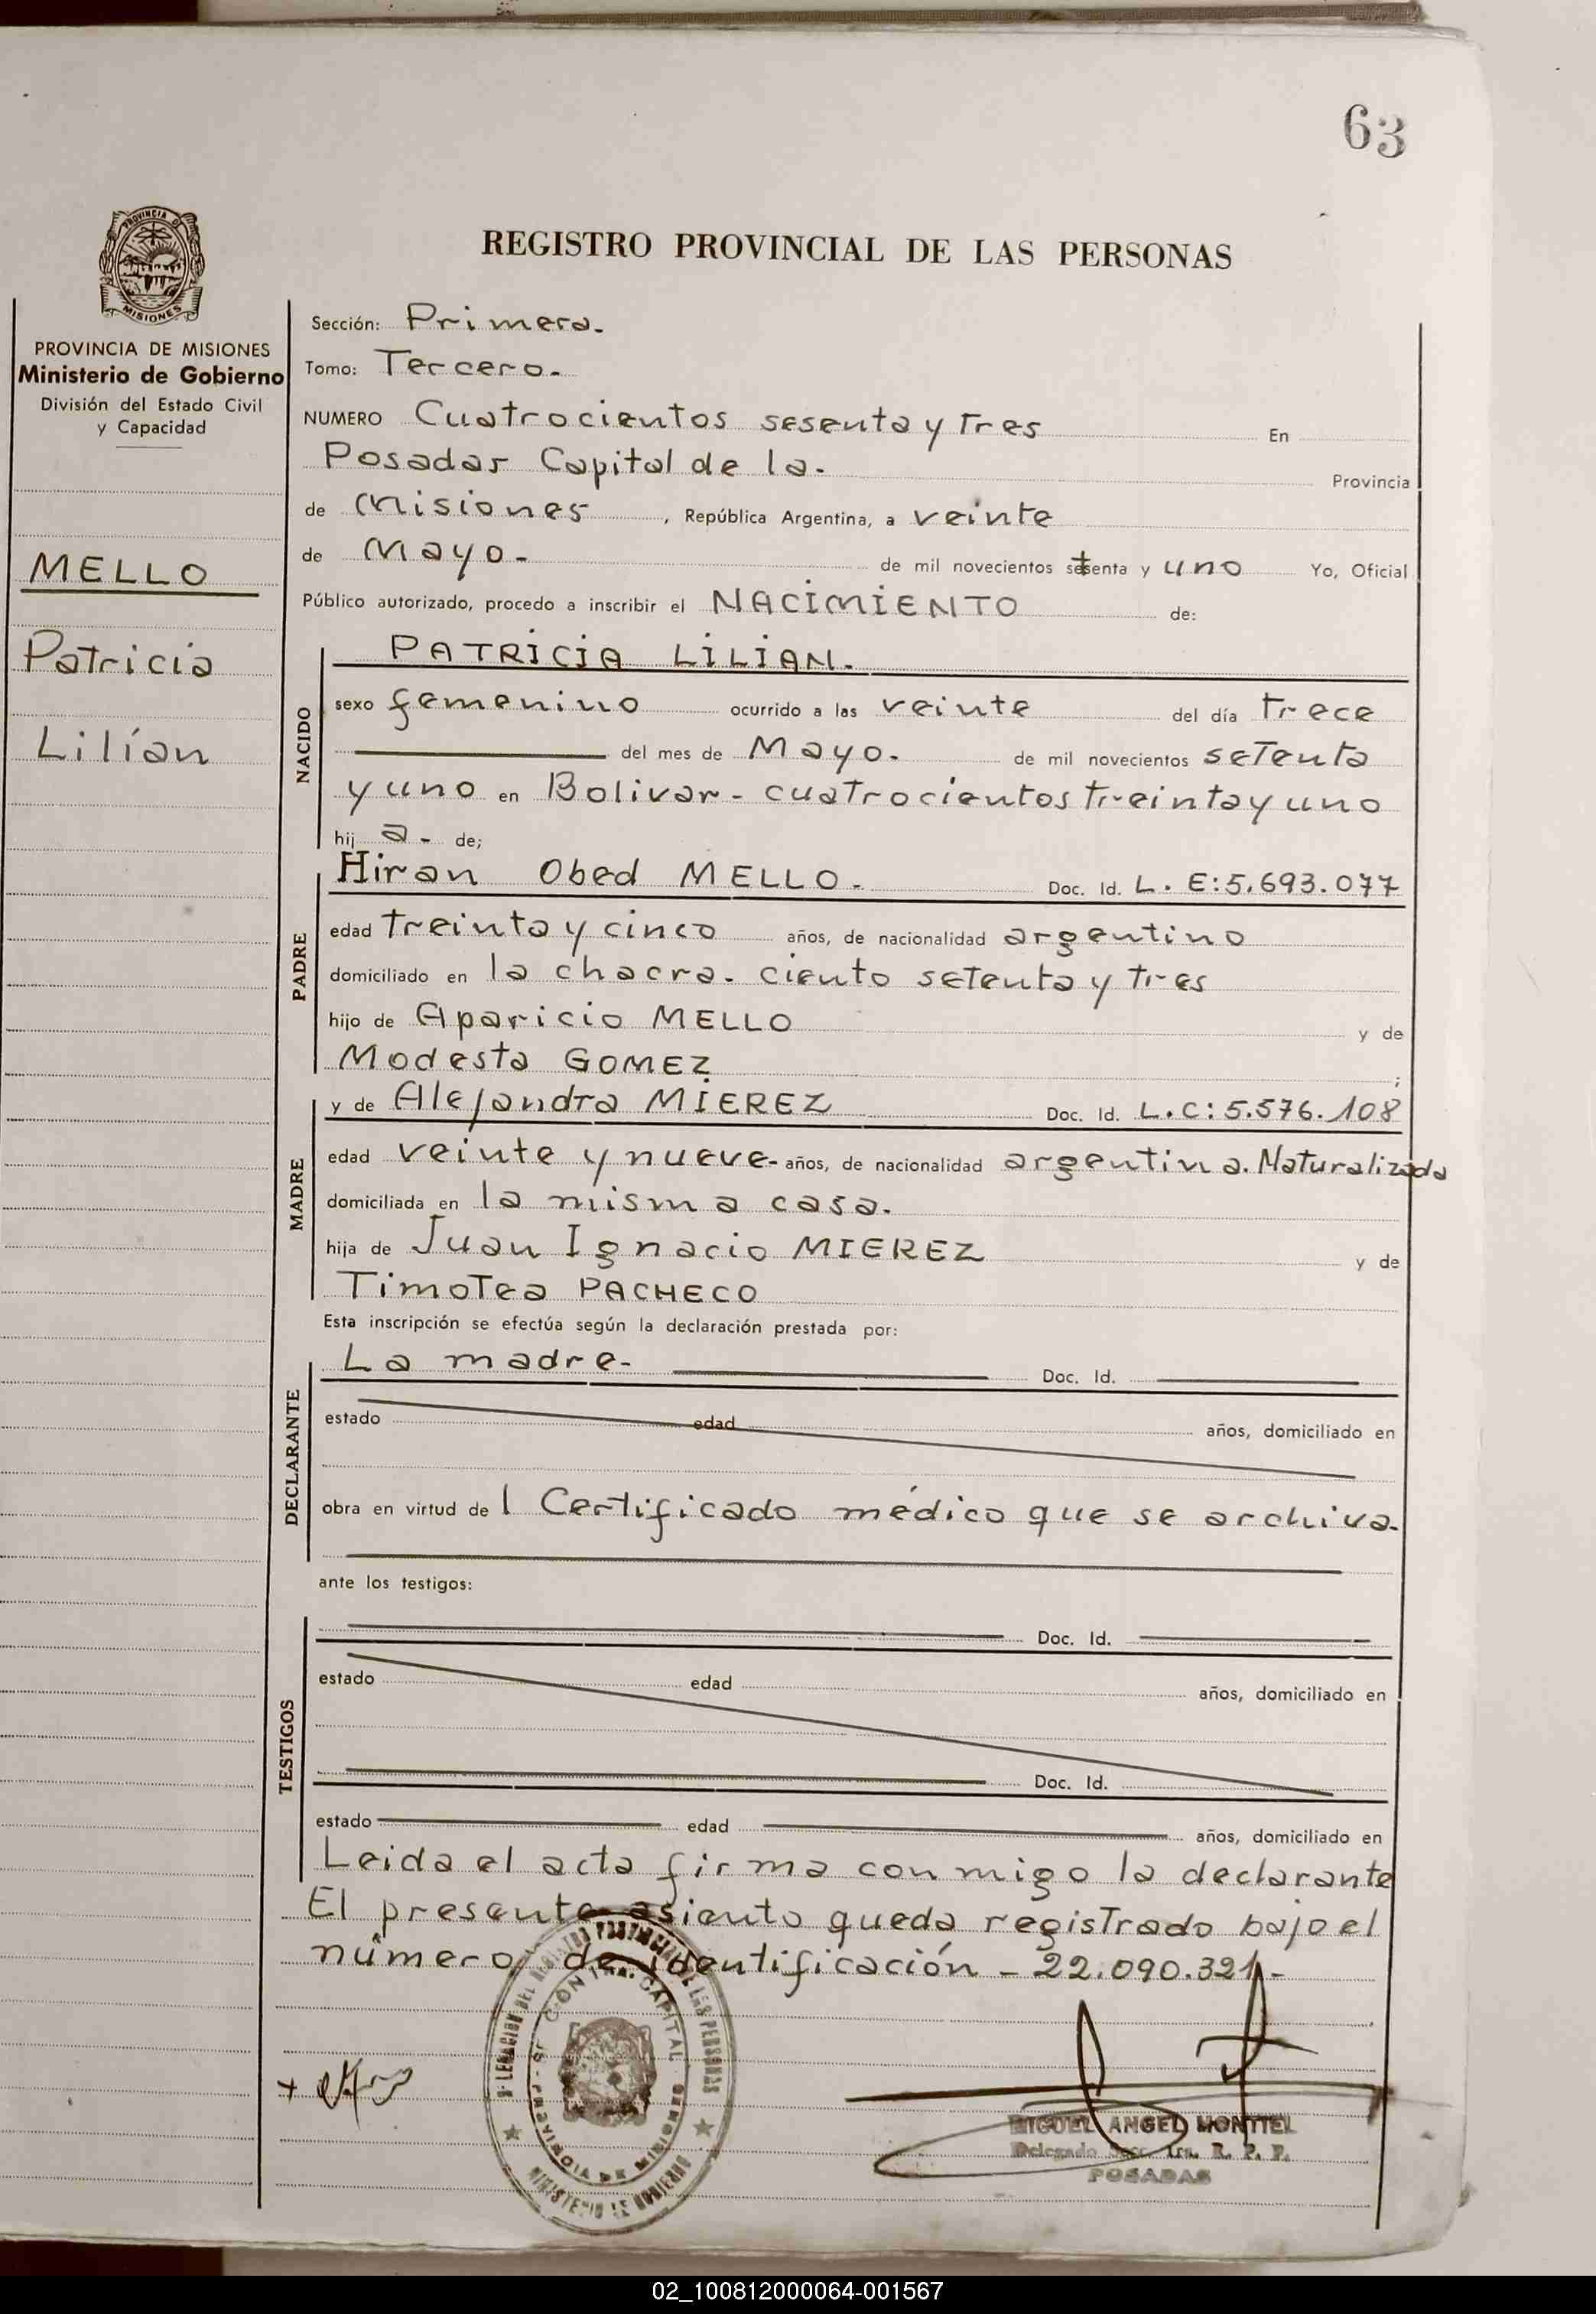 63
REGISTRO PROVINCIAL DE LAS PERSONAS
PROVINCIA DE MISIONES
Ministerio de Gobierno
División del Estado Civil
y Capacidad
MELLO
Patricia
Lilían
Sección: Primera.
Tomo: Tercero.
NUMERO Cuatrocientos sesenta y Tres En
Posadas Capital de la. Provincia
de Misiones, República Argentina, a veinte
de Mayo. de mil novecientos setenta y uno Yo, Oficial
Público autorizado, procedo a inscribir el NACIMIENTO de:
NACIDO
PATRICIA LILIAN.
sexo femenino ocurrido a las veinte del día trece
del mes de Mayo. de mil novecientos setenta
y uno en Bolivar - cuatrocientos treinta y uno
hij a - de;
PADRE
Hiran Obed MELLO. Doc. Id. L. E: 5.693.077
edad treinta y cinco años, de nacionalidad argentino
domiciliado en la chacra. ciento setenta y tres
hijo de Aparicio MELLO y de
Modesta GOMEZ ;
MADRE
y de Alejandra MIEREZ Doc. Id. L.C: 5.576.108
edad veinte y nueve- años, de nacionalidad argentina. Naturalizada
domiciliada en la misma casa.
hija de Juan Ignacio MIEREZ y de
Timotea PACHECO
Esta inscripción se efectúa según la declaración prestada por:
DECLARANTE
La madre- Doc. Id.
estado edad años, domiciliado en
obra en virtud de l Certificado médico que se archiva.
ante los testigos:
TESTIGOS
Doc. Id.
estado edad años, domiciliado en
Doc. Id.
estado edad años, domiciliado en
Leida el acta firma conmigo la declarante
El presente asiento queda registrado bajo el
número de identificación - 22.090.321-
MIGUEL ANGEL MONTIEL
Delegado Secc. 1ra. R. P. P.
POSADAS
02_100812000064-001567